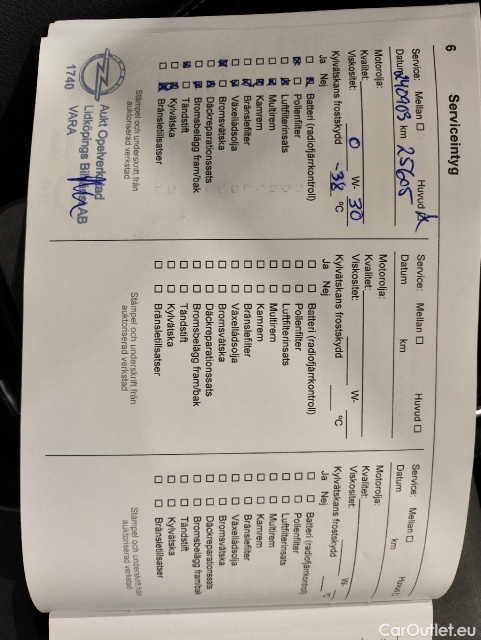 6
Serviceintyg
Service: Mellan ☐ Huvud ☒
Datum 240903 km 25605
Motorolja:
Kvalitet:
Viskositet: 0 W- 30
Kylvätskans frostskydd -38 °C
Ja Nej
Batteri (radiofjärrkontroll)
Pollenfilter
Luftfilterinsats
Multirem
Kamrem
Bränslefilter
Växellådsolja
Bromsvätska
Däckreparationssats
Bromsbelägg fram/bak
Tändstift
Kylvätska
Bränsletillsatser
Stämpel och underskrift från
auktoriserad verkstad
Aukt Opelverkstad
Lidköpings AB
VARA
1740
Service: Mellan ☐ Huvud ☐
Datum km
Motorolja:
Kvalitet:
Viskositet: W-
Kylvätskans frostskydd °C
Ja Nej
Batteri (radiofjärrkontroll)
Pollenfilter
Luftfilterinsats
Multirem
Kamrem
Bränslefilter
Växellådsolja
Bromsvätska
Däckreparationssats
Bromsbelägg fram/bak
Tändstift
Kylvätska
Bränsletillsatser
Stämpel och underskrift från
auktoriserad verkstad
Service: Mellan ☐ Huvud ☐
Datum km
Motorolja:
Kvalitet:
Viskositet: W-
Kylvätskans frostskydd °C
Ja Nej
Batteri (radiofjärrkontroll)
Pollenfilter
Luftfilterinsats
Multirem
Kamrem
Bränslefilter
Växellådsolja
Bromsvätska
Däckreparationssats
Bromsbelägg fram/bak
Tändstift
Kylvätska
Bränsletillsatser
Stämpel och underskrift från
auktoriserad verkstad
CarOutlet.eu